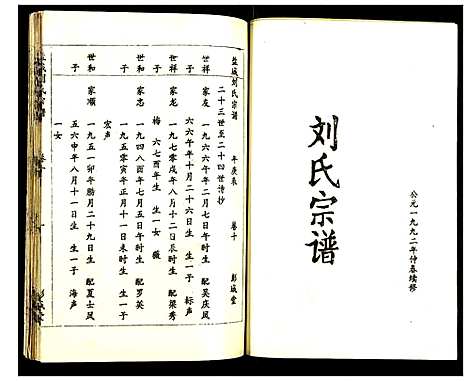 刘氏宗谱
公元一九九二年仲春续修
盐城刘氏宗谱 年庚表 卷十 彭城堂
二十三世至二十四世传抄
世祥 家友 一九六六年二月七日午时生 配吴庆凤
子 六六年十月二十六日生 生一子 标声
世祥 家龙 一九七零戌年八月十二日辰时生 配梁秀
梅 六七酉年生 生一女 薇
世和 家志 一九四八酉年七月五日午时生 配罗英
子 一九五零寅年正月十一日未时生 生一子
宏声
世和 家顺 一九五一卯年腊月二十九日生 配夏士凤
子 五六申年八月十一日生 生一子 海声
一女